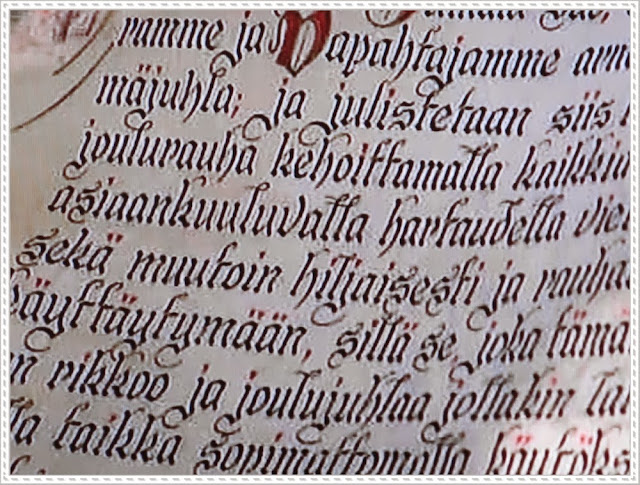 Jumala suo,
ramme ja Vapahtajamme armo
mäjuhla; ja julistetaan siis
joulurauha kehoittamalla kaikkia
asiaankuuluvalla hartaudella vie
sekä muutoin hiljaisesti ja rauha
käyttäytymään, sillä se, joka tämä
n rikkoo ja joulujuhlaa jollakin lai
lla taikka sopimattomalla käytöks